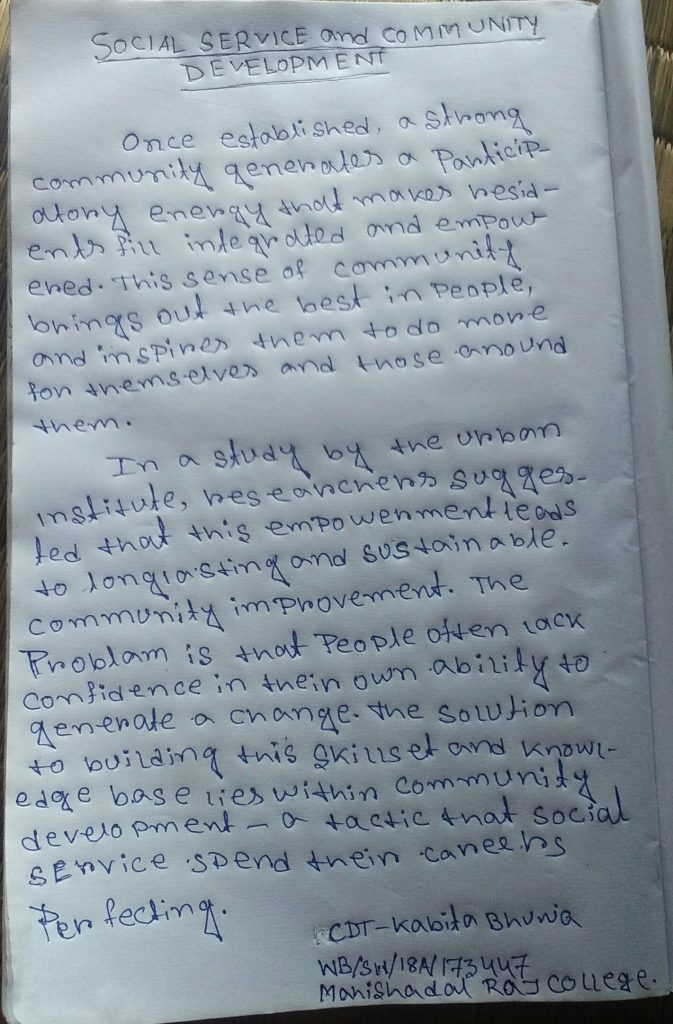 SOCIAL SERVICE and COMMUNITY
DEVELOPMENT
Once established, a strong
community generates a Particip-
atory energy that makes resid-
ents fill integrated and empow
ered. This sense of community
brings out the best in People,
and inspires them to do more
for themselves and those around
them.
In a study by the urban
institute, researchers sugges-
ted that this empowerment leads
to longlasting and sustainable.
community improvement. The
Problam is that People often lack
confidence in their own ability to
generate a change. the solution
to building this skillset and knowl-
edge base lies within community
development - a tactic that social
service spend their careers
Perfecting.
CDT-Kabita Bhunia
WB/SW/18A/173447
Mahishadal Raj College.